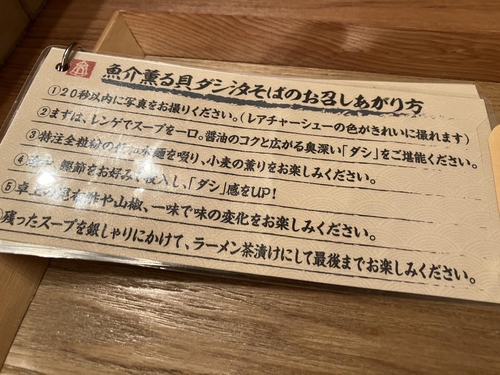 魚介薫る貝ダシ汐そばのお召しあがり方
①20秒以内に写真をお撮りください。(レアチャーシューの色がきれいに撮れます)
②まずは、レンゲでスープを一口。醤油のコクと広がる奥深い「ダシ」をご堪能ください。
③特注全粒粉の 麺を啜り、小麦の薫りをお楽しみください。
④ 鰹節をお好みで投入し、「ダシ」感をUP!
⑤卓上の昆布酢や山椒、一味で味の変化をお楽しみください。
残ったスープを銀しゃりにかけて、ラーメン茶漬けにして最後までお楽しみください。